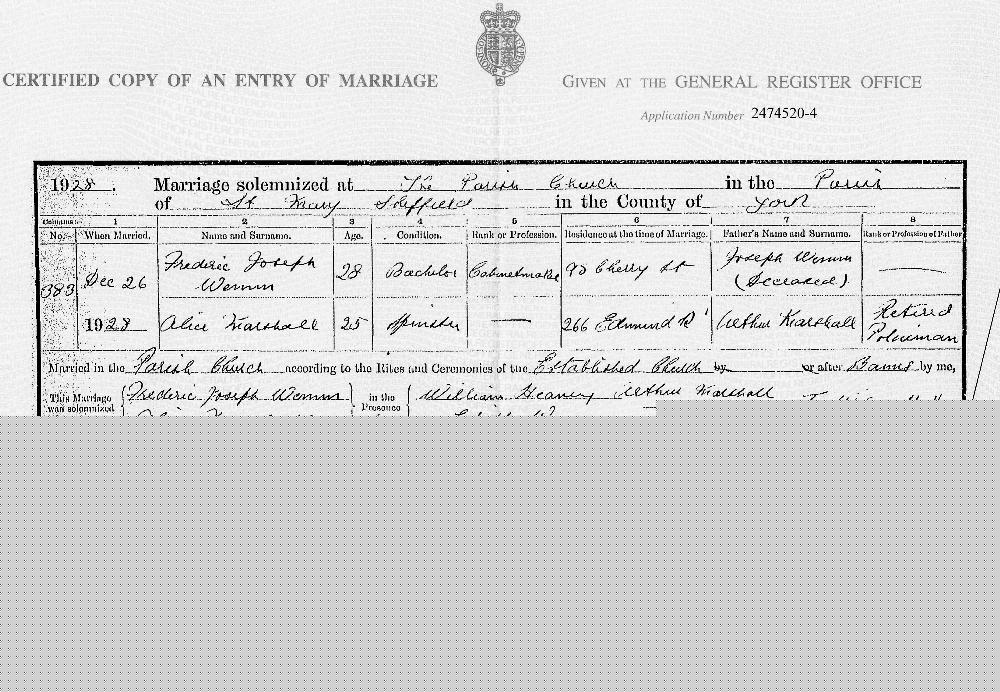 CERTIFIED COPY OF AN ENTRY OF MARRIAGE
GIVEN AT THE GENERAL REGISTER OFFICE
Application Number 2474520-4
1928. Marriage solemnized at The Parish Church in the Parish
of St Mary Sheffield in the County of York
Columns 1 2 3 4 5 6 7 8
No. When Married. Name and Surname. Age. Condition. Rank or Profession. Residence at the time of Marriage. Father's Name and Surname. Rank or Profession of Father
383 Dec 26 Frederic Joseph 28 Bachelor Cabinetmaker Cherry St Joseph
(Deceased)
1928 Alice Marshall 25 Spinster 266 Edmund Rd Arthur Marshall Retired
Policeman
Married in the Parish Church according to the Rites and Ceremonies of the Established Church by or after Banns by me,
This Marriage Frederic Joseph in the William Arthur Marshall
was solemnized Presence